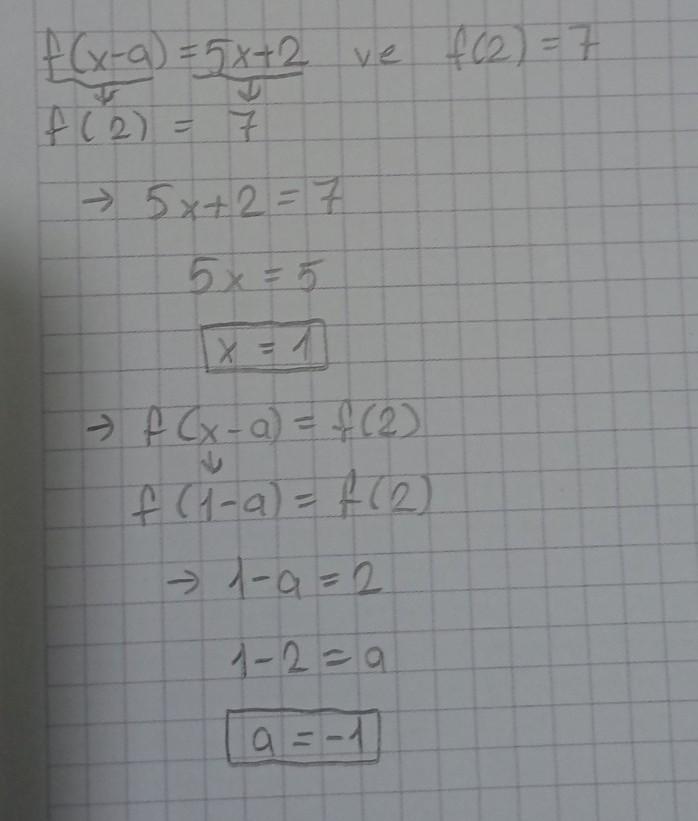 f(x-a) = 5x+2 ve f(2) = 7
↓ ↓
f(2) = 7
→ 5x+2 = 7
5x = 5
x = 1
→ f(x-a) = f(2)
↓
f(1-a) = f(2)
→ 1-a = 2
1-2 = a
a = -1